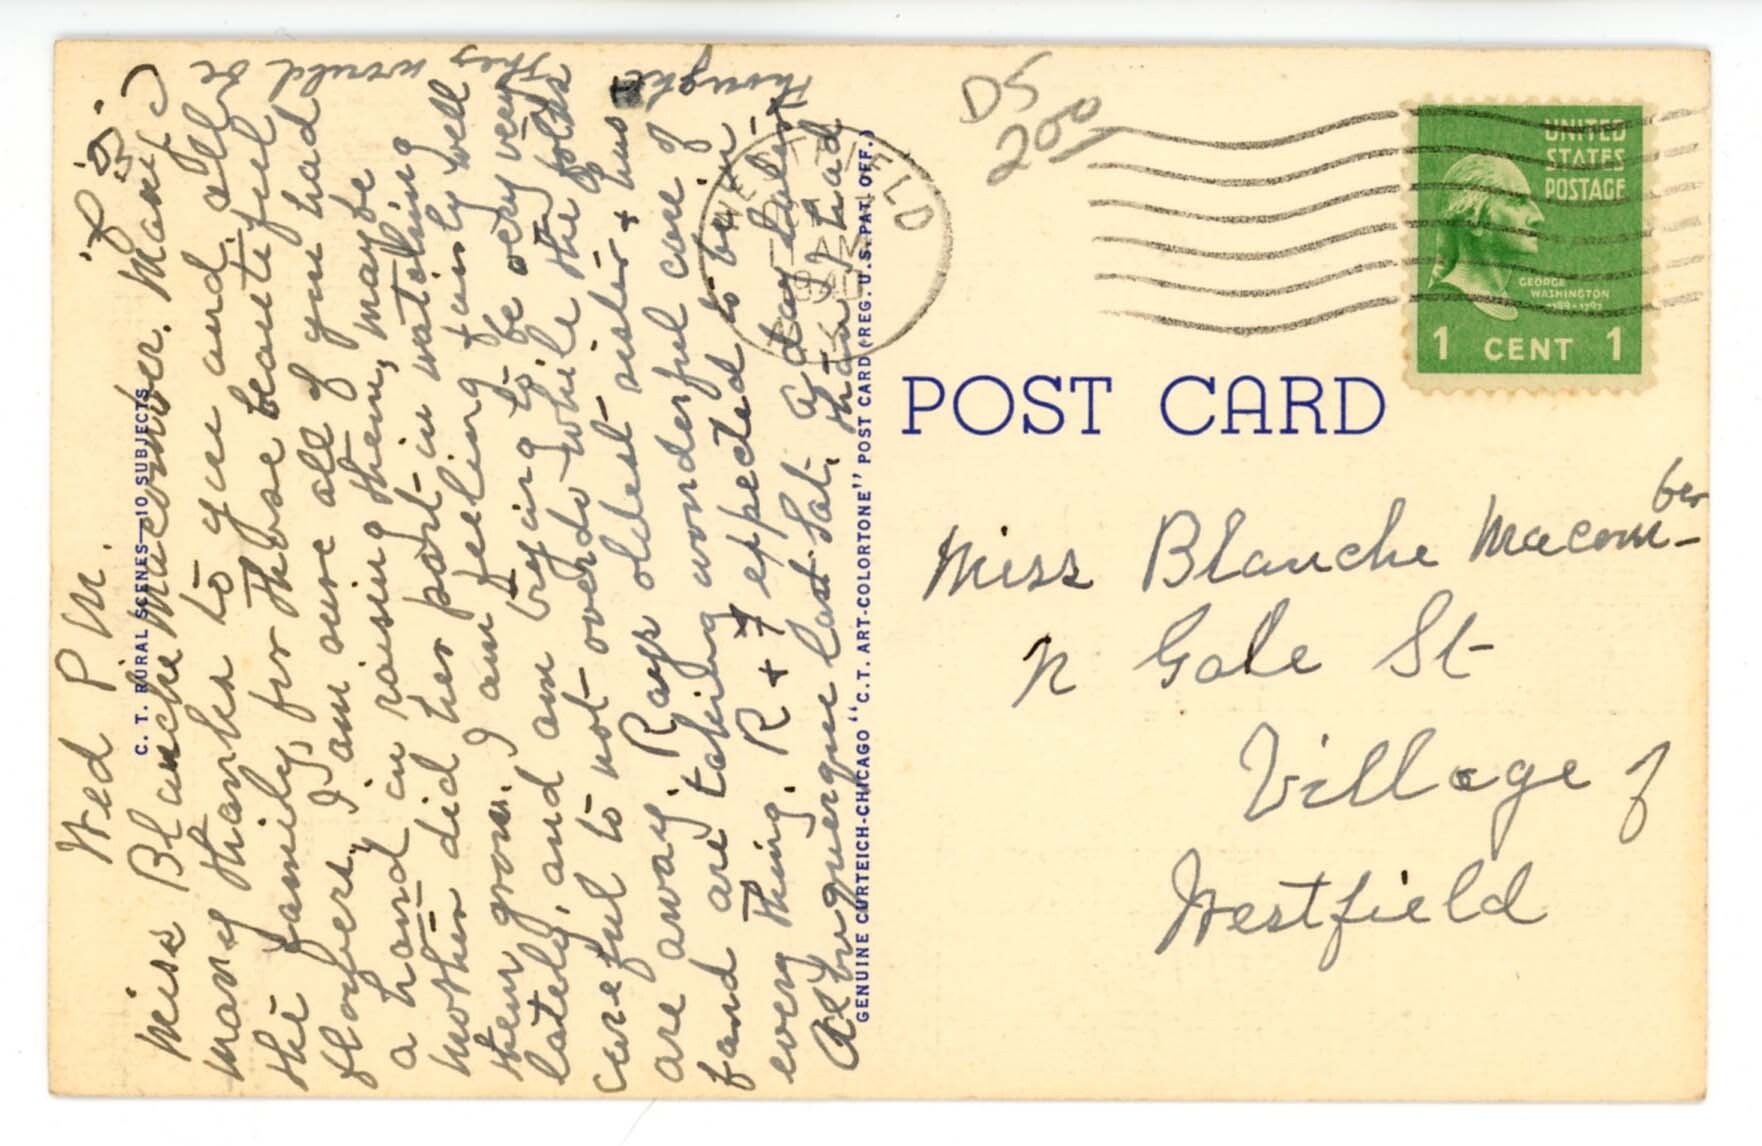 Wed P M.
Miss Blanche Macomber. Many
many thanks to you and all
the family, for those beautiful
flowers, I am sure all of you had
a hand in raising them, maybe
Mother did her part in watching
them grow. I am feeling fairly well
lately, and am trying to be very very
careful to not overdo while the folks
are away. Rays oldest sister + hus-
band are taking wonderful care of
every thing. R + F expected to be in
Alburquerque last Sat. a day later
than I had
thought
they would be
P.S.
C. T. RURAL SCENES—10 SUBJECTS
GENUINE CURTEICH-CHICAGO "C.T. ART-COLORTONE" POST CARD (REG. U.S. PAT. OFF.)
DS
200
WESTFIELD
AM
UNITED
STATES
POSTAGE
GEORGE
WASHINGTON
1789-1797
1 CENT 1
POST CARD
Miss Blanche Macom-
ber
N Gale St
Village of
Westfield